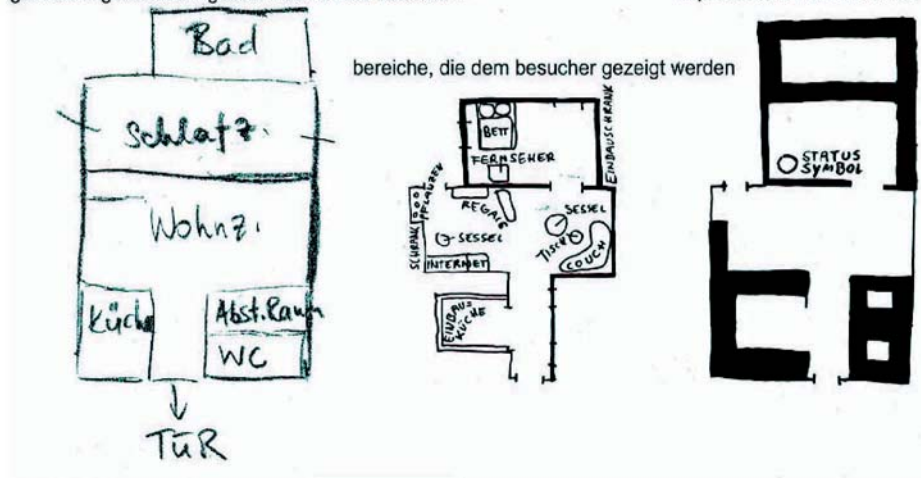 Bad
Schlafz.
Wohnz.
Küche
Abst.Raum
WC
TÜR
bereiche, die dem besucher gezeigt werden
BETT
FERNSEHER
EINBAUSCHRANK
PFLANZEN
REGALE
SCHRANK
SESSEL
SESSEL
TISCH
COUCH
INTERNET
EINBAU-
KÜCHE
STATUS
SYMBOL